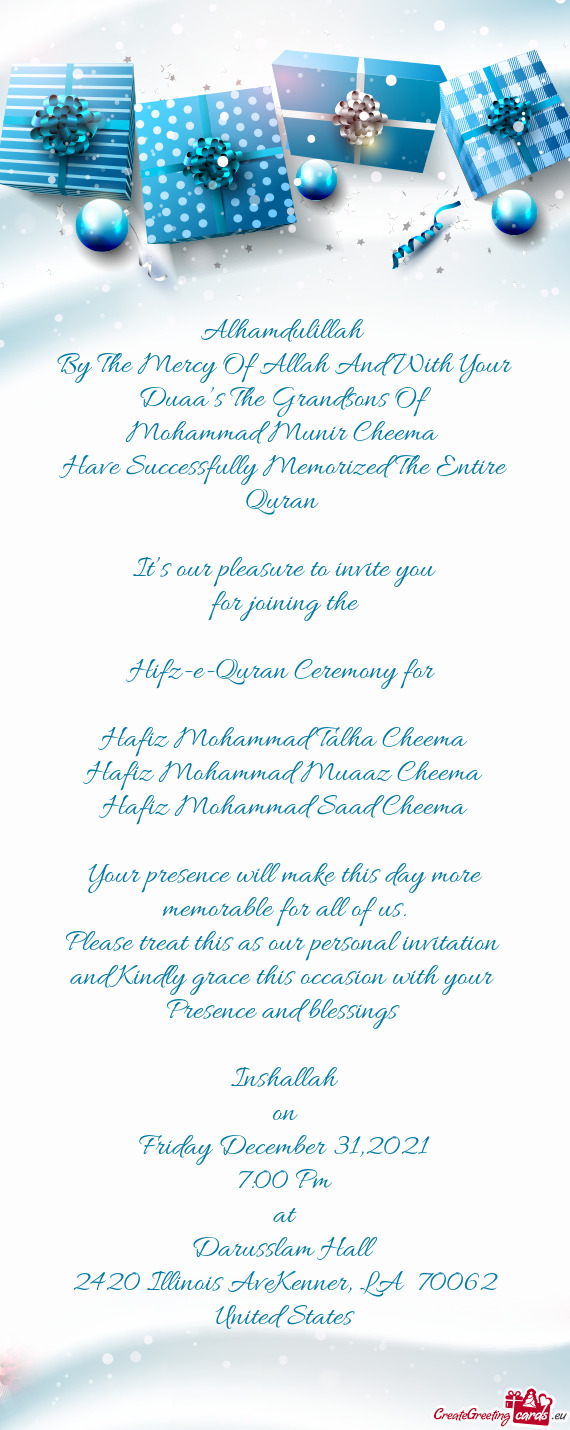 Alhamdulillah
By The Mercy Of Allah And With Your
Duaa's The Grandsons Of
Mohammad Munir Cheema
Have Successfully Memorized The Entire
Quran
It's our pleasure to invite you
for joining the
Hifz-e-Quran Ceremony for
Hafiz Mohammad Talha Cheema
Hafiz Mohammad Muaaz Cheema
Hafiz Mohammad Saad Cheema
Your presence will make this day more
memorable for all of us.
Please treat this as our personal invitation
and Kindly grace this occasion with your
Presence and blessings
Inshallah
on
Friday December 31,2021
7:00 Pm
at
Darusslam Hall
2420 Illinois AveKenner, LA 70062
United States
CreateGreeting cards .eu